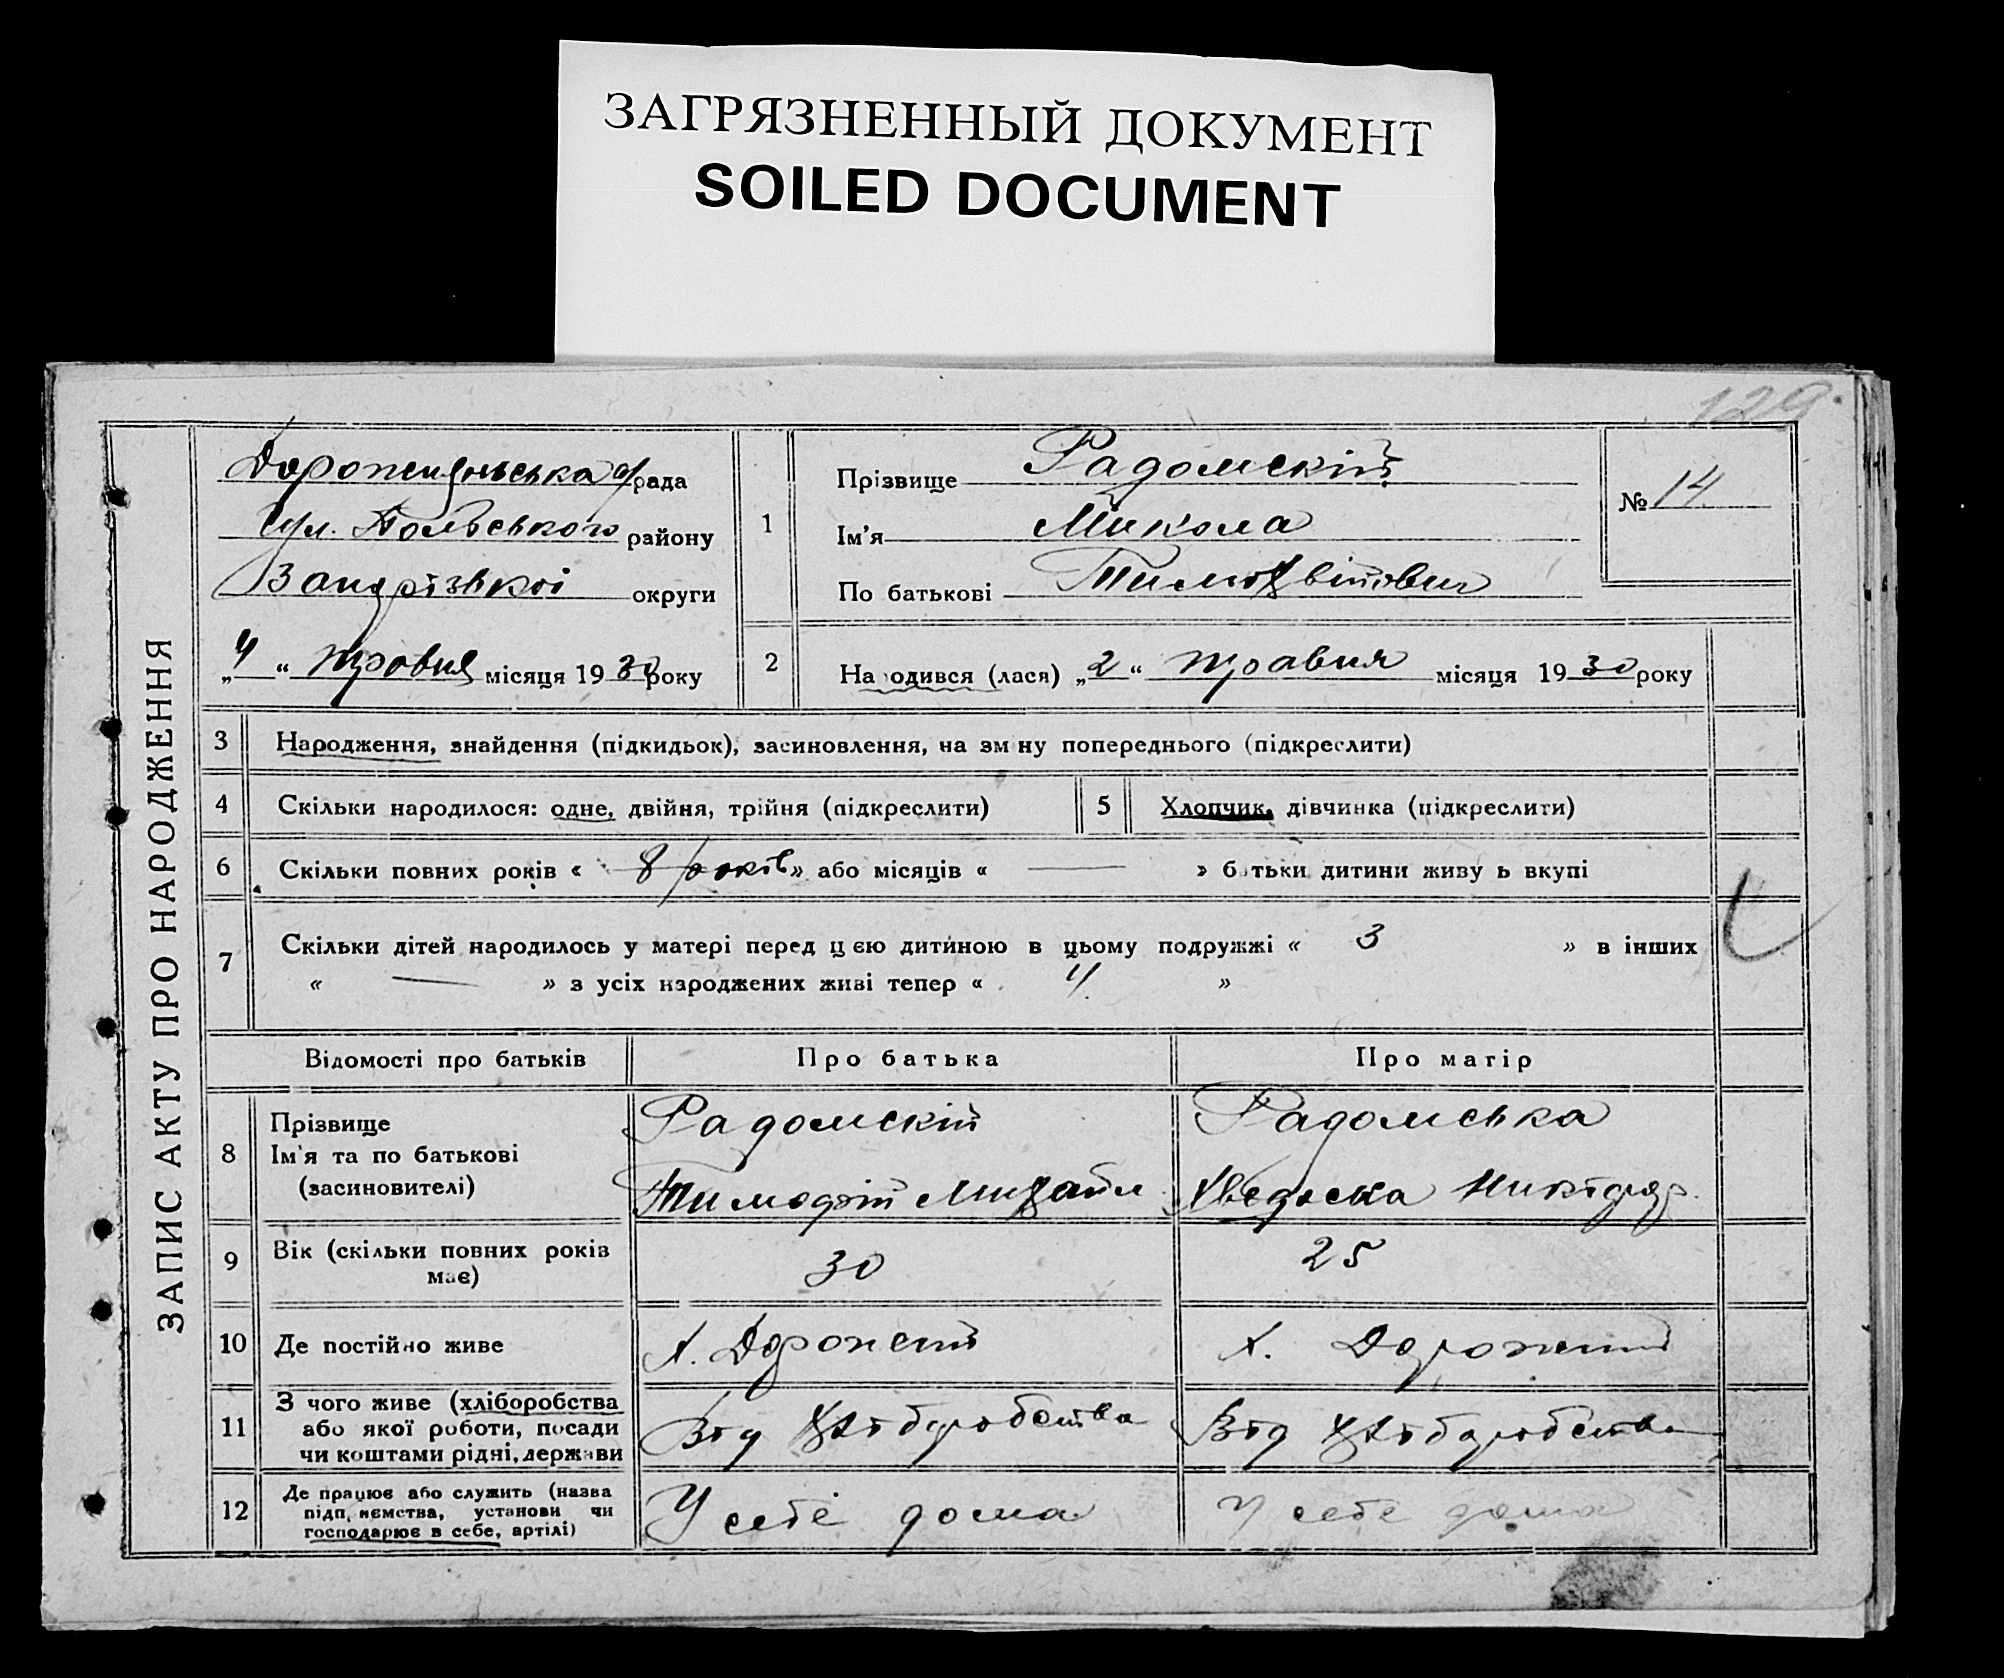 ЗАГРЯЗНЕННЫЙ ДОКУМЕНТ
SOILED DOCUMENT
129.
ЗАПИС АКТУ ПРО НАРОДЖЕННЯ
с/рада
району
округи
„4“ травня місяця 1930 року
1
Прізвище Радомскій
Ім'я Микола
По батькові
№ 14.
2
Народився (лася) „2“ травня місяця 1930 року
3 Народження, знайдення (підкидьок), засиновлення, на зміну попереднього (підкреслити)
4 Скільки народилося: одне, двійня, трійня (підкреслити)
5 Хлопчик, дівчинка (підкреслити)
6 Скільки повних років « 8 років » або місяців « — » батьки дитини живуть вкупі
7 Скільки дітей народилось у матері перед цією дитиною в цьому подружжі « 3 » в інших
« — » з усіх народжених живі тепер « 4 »
Відомості про батьків
Про батька
Про матір
8
Прізвище
Ім'я та по батькові
(засиновителі)
Радомскій
Тимофій Михайл
Радомська
9
Вік (скільки повних років
має)
30
25
10 Де постійно живе
х.
х.
11
З чого живе (хліборобства
або якої роботи, посади
чи коштами рідні, держави
Від хліборобства
Від хліборобства
12
Де працює або служить (назва
підприємства, установи чи
господарює в себе, артілі)
У себе дома
У себе дома